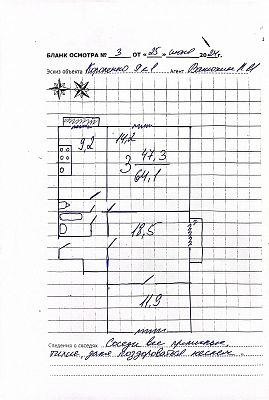 БЛАНК ОСМОТРА № 3 ОТ «25» июля 2024г.
Эскиз объекта Карпенко 9 к 1 Агент
9,2 14,2
3 47,3
64,1
18,5
11,9
Сведения о соседях Соседи все приличные,
тихие, даже поздороваться